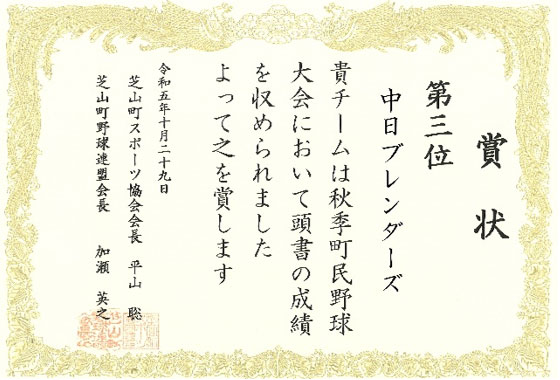 賞状
第三位
中日ブレンダーズ
貴チームは秋季町民野球
大会において頭書の成績
を収められました
よって之を賞します
令和五年十月二十九日
芝山町スポーツ協会会長 平山 聡
芝山町野球連盟会長 加瀬 英之